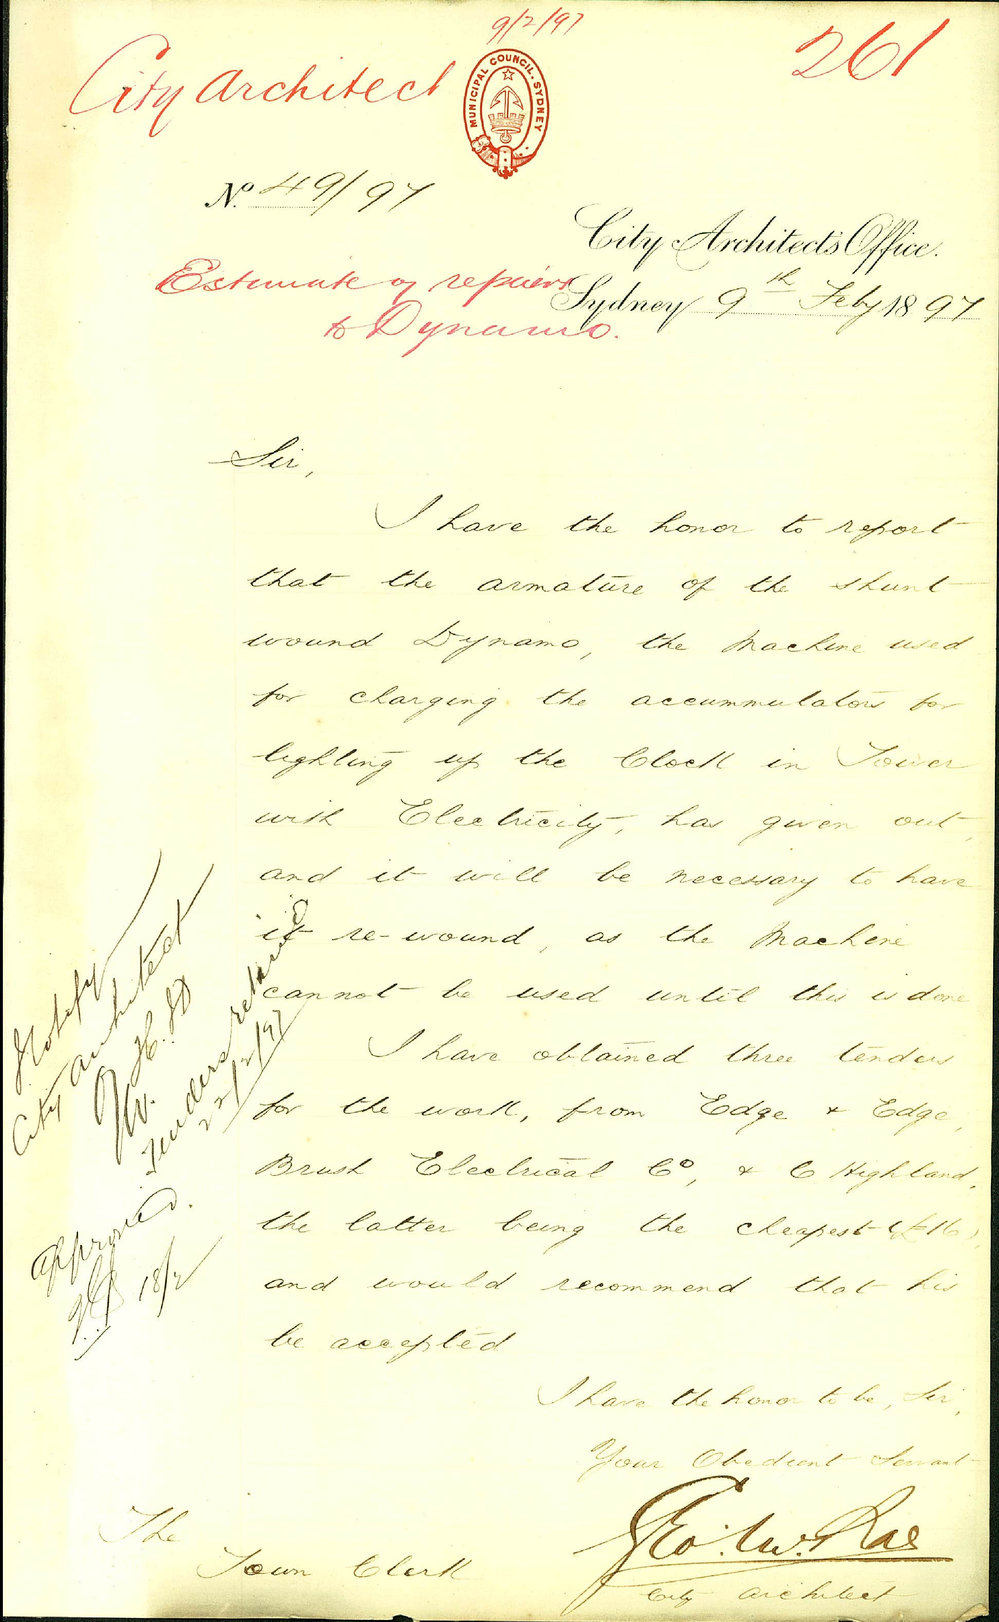 9/2/97
261
City Architect
MUNICIPAL COUNCIL. SYDNEY
No. 49/97
City Architect's Office.
Sydney 9th Feby 1897
Estimate of repairs
to Dynamo.
Sir,
I have the honor to report
that the armature of the shunt
wound Dynamo, the Machine used
for charging the accummulators for
lighting up the Clock in Tower
with Electricity, has given out,
and it will be necessary to have
it re-wound, as the Machine
cannot be used until this is done
I have obtained three tenders
for the work, from Edge & Edge,
Brush Electrical Co, & C Highland,
the latter being the cheapest (£16),
and would recommend that his
be accepted
I have the honor to be, Sir,
Your Obedient Servant
Geo. McRae
City Architect
The
Town Clerk
Notify
City Architect
Tenders returned
22/2/97
Approved.
18/2